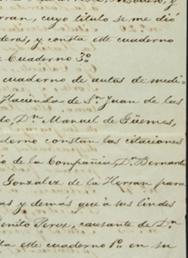 rran, cuyo título se me dió
deros, y consta este cuaderno
Cuaderno 3º
cuaderno de autos de medi
Haciendas de Sn. Juan de los
do, Dn. Manuel de Güemes,
derno constan las citaciones
de la Compañia Dn. Bernardo
Gonzalez de la Herran para
as y demás que á sus lindes
enito Perez, causante de Dn.
ta este cuaderno 1º en su